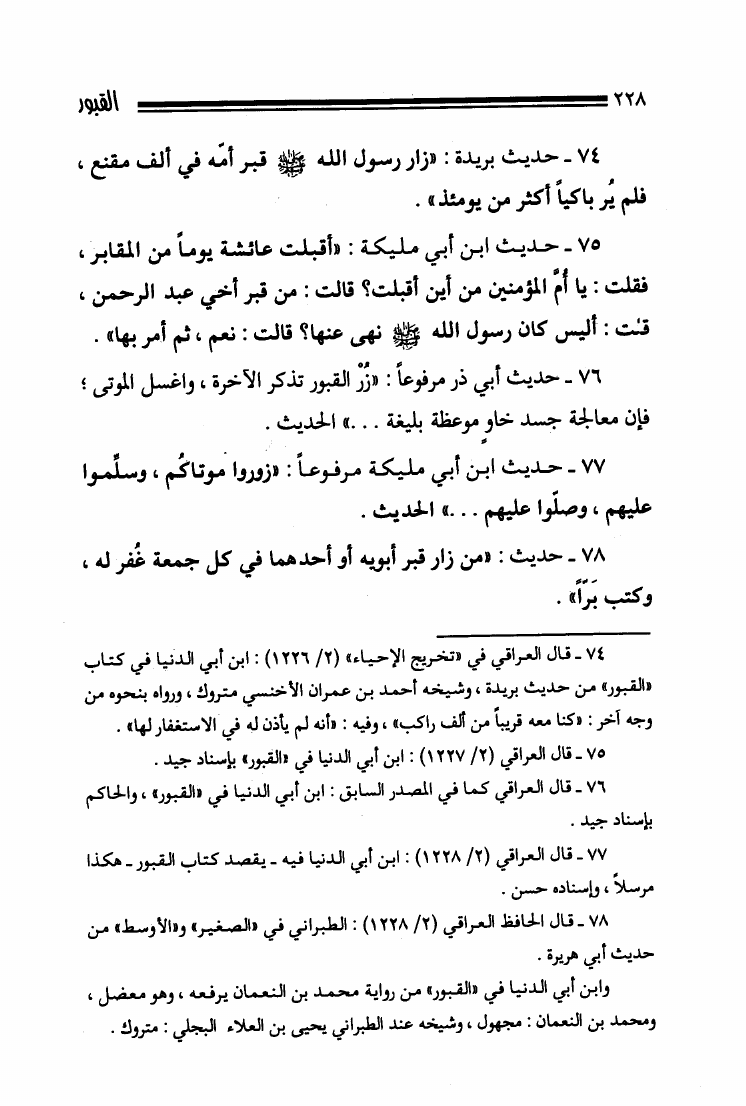 ٢٢٨ القبور
٧٤ ـ حديث بريدة : «زار رسول الله ﷺ قبر أمّه في ألف مقنع ،
فلم يُر باكياً أكثر من يومئذ» .
٧٥ ـ حديث ابن أبي مليكة : «أقبلت عائشة يوماً من المقابر ،
فقلت : يا أُمَّ المؤمنين من أين أقبلت؟ قالت : من قبر أخي عبد الرحمن ،
قلت : أليس كان رسول الله ﷺ نهى عنها؟ قالت : نعم ، ثم أمر بها» .
٧٦ ـ حديث أبي ذر مرفوعاً : «زُرْ القبور تذكر الآخرة ، واغسل الموتى ؛
فإن معالجة جسد خاوٍ موعظة بليغة . . .» الحديث .
٧٧ ـ حديث ابن أبي مليكة مرفوعاً : «زوروا موتاكُم ، وسلِّموا
عليهم ، وصلّوا عليهم . . .» الحديث .
٧٨ ـ حديث : «من زار قبر أبويه أو أحدهما في كل جمعة غُفر له ،
وكتب بَرّاً» .
٧٤ ـ قال العراقي في «تخريج الإحياء» (٢/ ١٢٢٦) : ابن أبي الدنيا في كتاب
«القبور» من حديث بريدة ، وشيخه أحمد بن عمران الأخنسي متروك ، ورواه بنحوه من
وجه آخر : «كنا معه قريباً من ألف راكب» ، وفيه : «أنه لم يأذن له في الاستغفار لها» .
٧٥ ـ قال العراقي (٢/ ١٢٢٧) : ابن أبي الدنيا في «القبور» بإسناد جيد .
٧٦ ـ قال العراقي كما في المصدر السابق : ابن أبي الدنيا في «القبور» ، والحاكم
بإسناد جيد .
٧٧ ـ قال العراقي (٢/ ١٢٢٨) : ابن أبي الدنيا فيه ـ يقصد كتاب القبور ـ هكذا
مرسلاً ، وإسناده حسن .
٧٨ ـ قال الحافظ العراقي (٢/ ١٢٢٨) : الطبراني في «الصغير» و«الأوسط» من
حديث أبي هريرة .
وابن أبي الدنيا في «القبور» من رواية محمد بن النعمان يرفعه ، وهو معضل ،
ومحمد بن النعمان : مجهول ، وشيخه عند الطبراني يحيى بن العلاء البجلي : متروك .